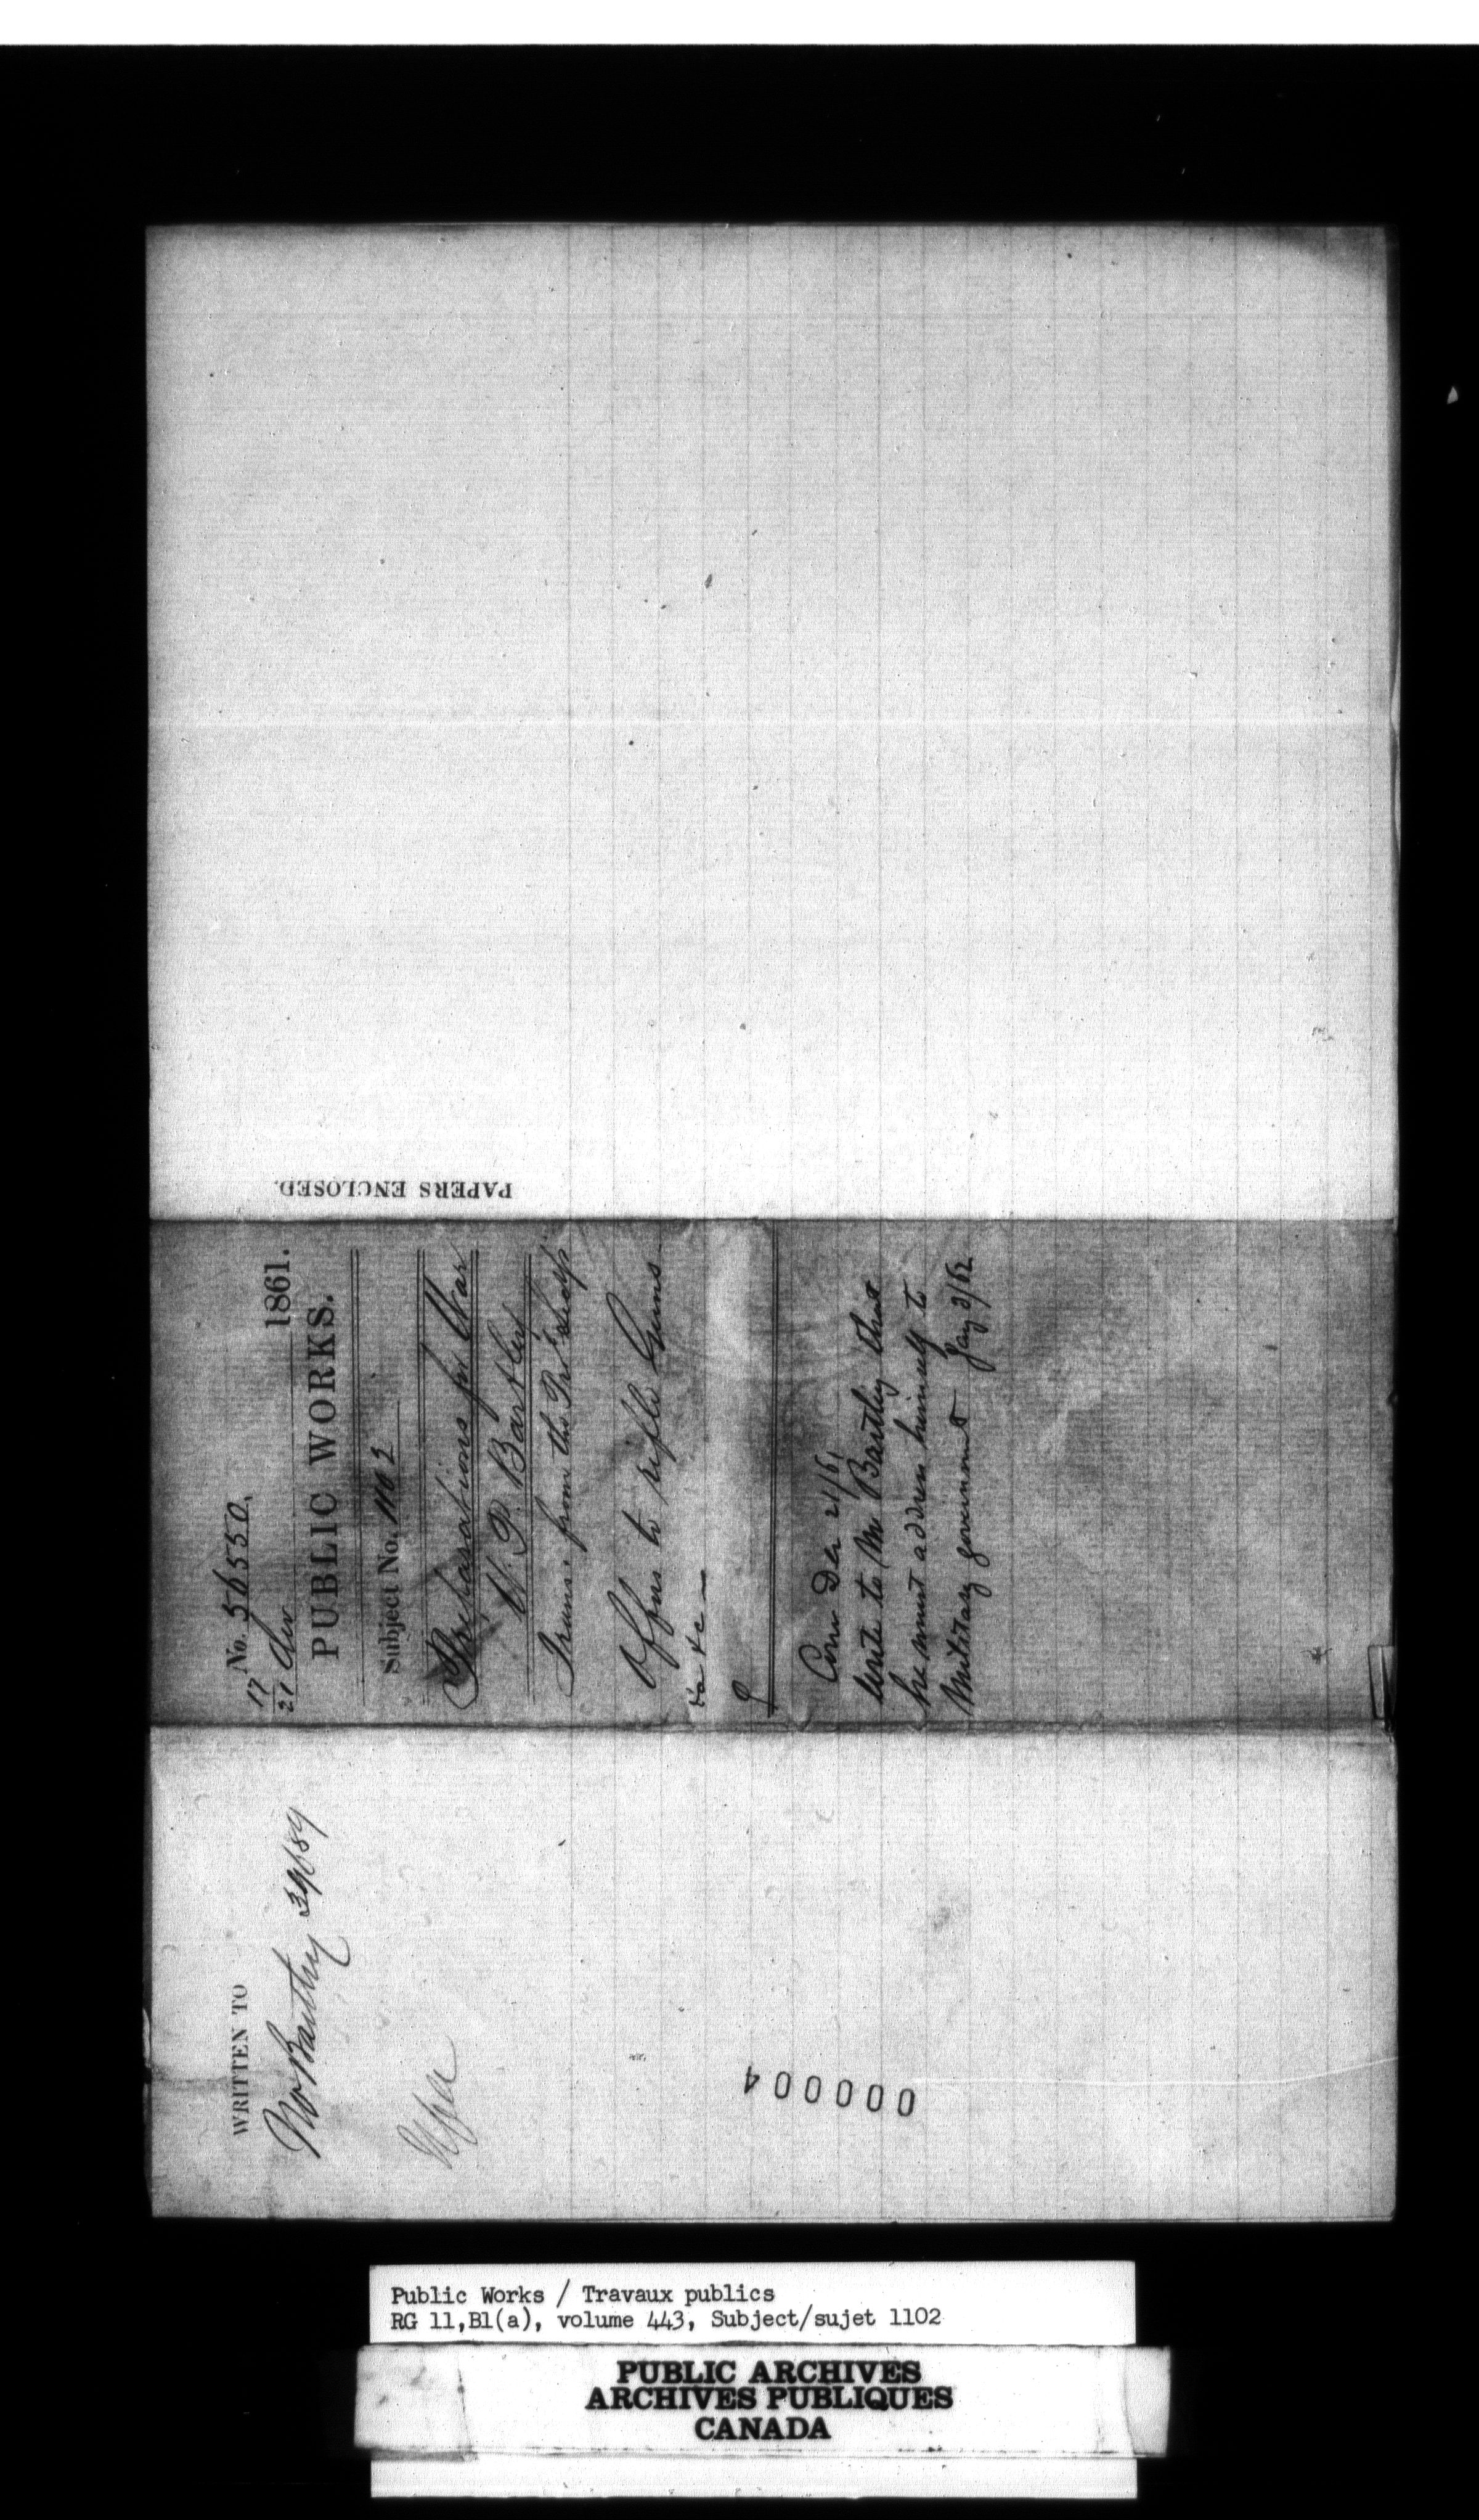 PAPERS ENCLOSED.
No. 56550.
17
21 Dec 1861.
PUBLIC WORKS.
Subject No. 1102
Preparations for War
W. P. Bartley
Trans. from the Pro. Secy
Offers to rifle Guns
&a &c —
Com Dec 21/61
Write to Mr Bartley that
he must address himself to
Military government Jany 3/62
WRITTEN TO
Mr Bartley 39684
000004
Public Works / Travaux publics
RG 11,B1(a), volume 443, Subject/sujet 1102
PUBLIC ARCHIVES
ARCHIVES PUBLIQUES
CANADA